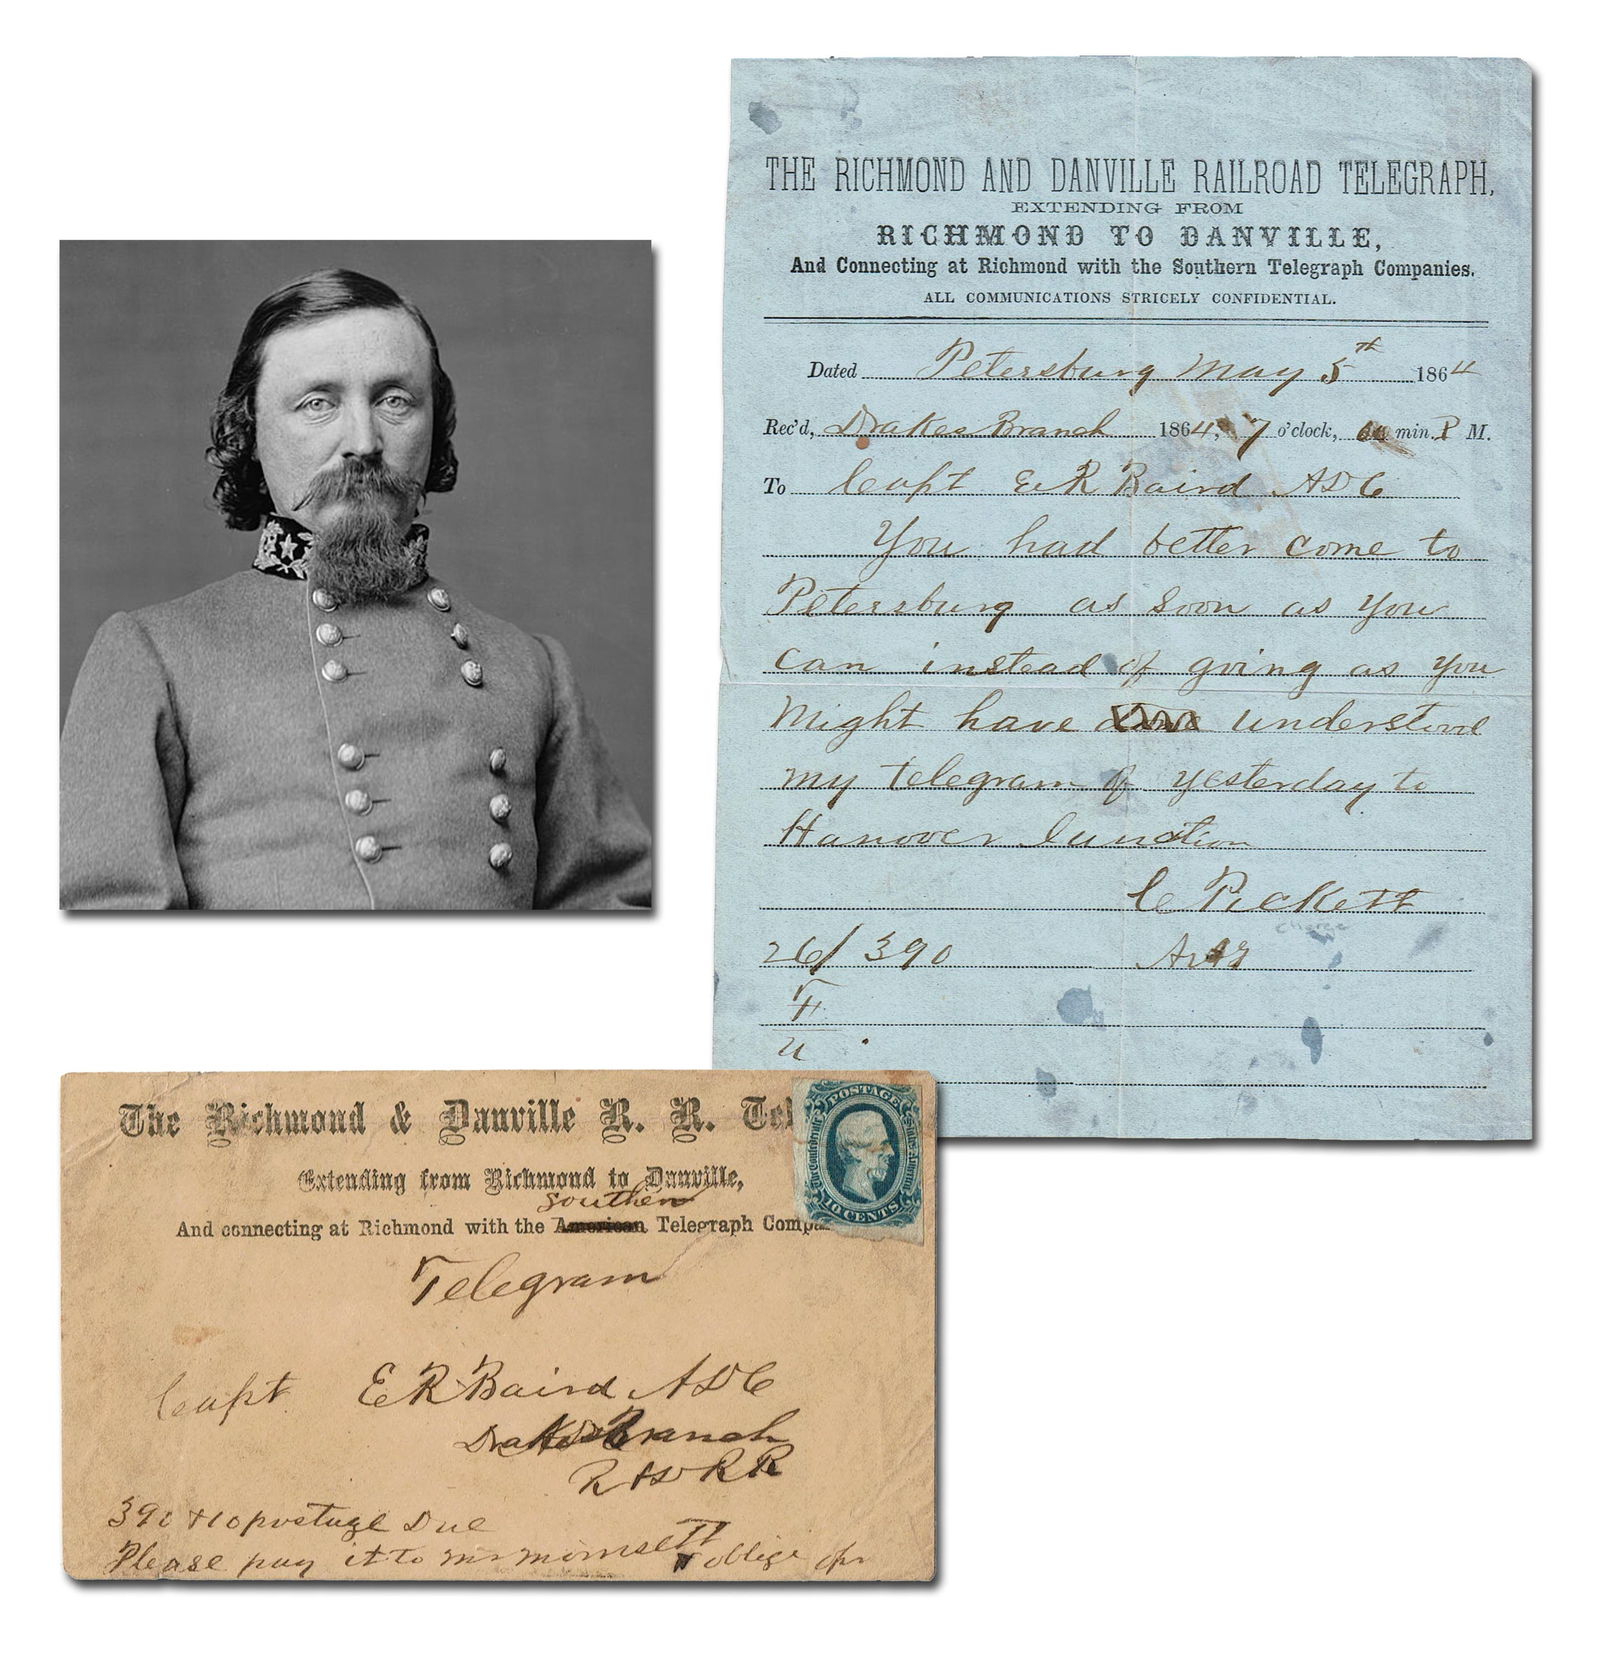 THE RICHMOND AND DANVILLE RAILROAD TELEGRAPH,
EXTENDING FROM
RICHMOND TO DANVILLE,
And Connecting at Richmond with the Southern Telegraph Companies.
ALL COMMUNICATIONS STRICELY CONFIDENTIAL.
Dated Petersburg May 5th 1864
Rec'd, Drakes Branch 1864, 7 o'clock, min. P M.
To Capt E R Baird ADC
You had better come to
Petersburg as soon as you
can instead of going as you
Might have understood
my telegram of yesterday to
Hanover Junction
C Pickett
26/ 390
The Richmond & Danville R. R. Tel
Extending from Richmond to Danville,
southern
And connecting at Richmond with the American Telegraph Compa
POSTAGE
The Confederate States of America
10 CENTS
Telegram
Capt E R Baird ADC
Drakes Branch
R & D R R
390 + 10 postage Due
Please pay it to mr & oblige opr